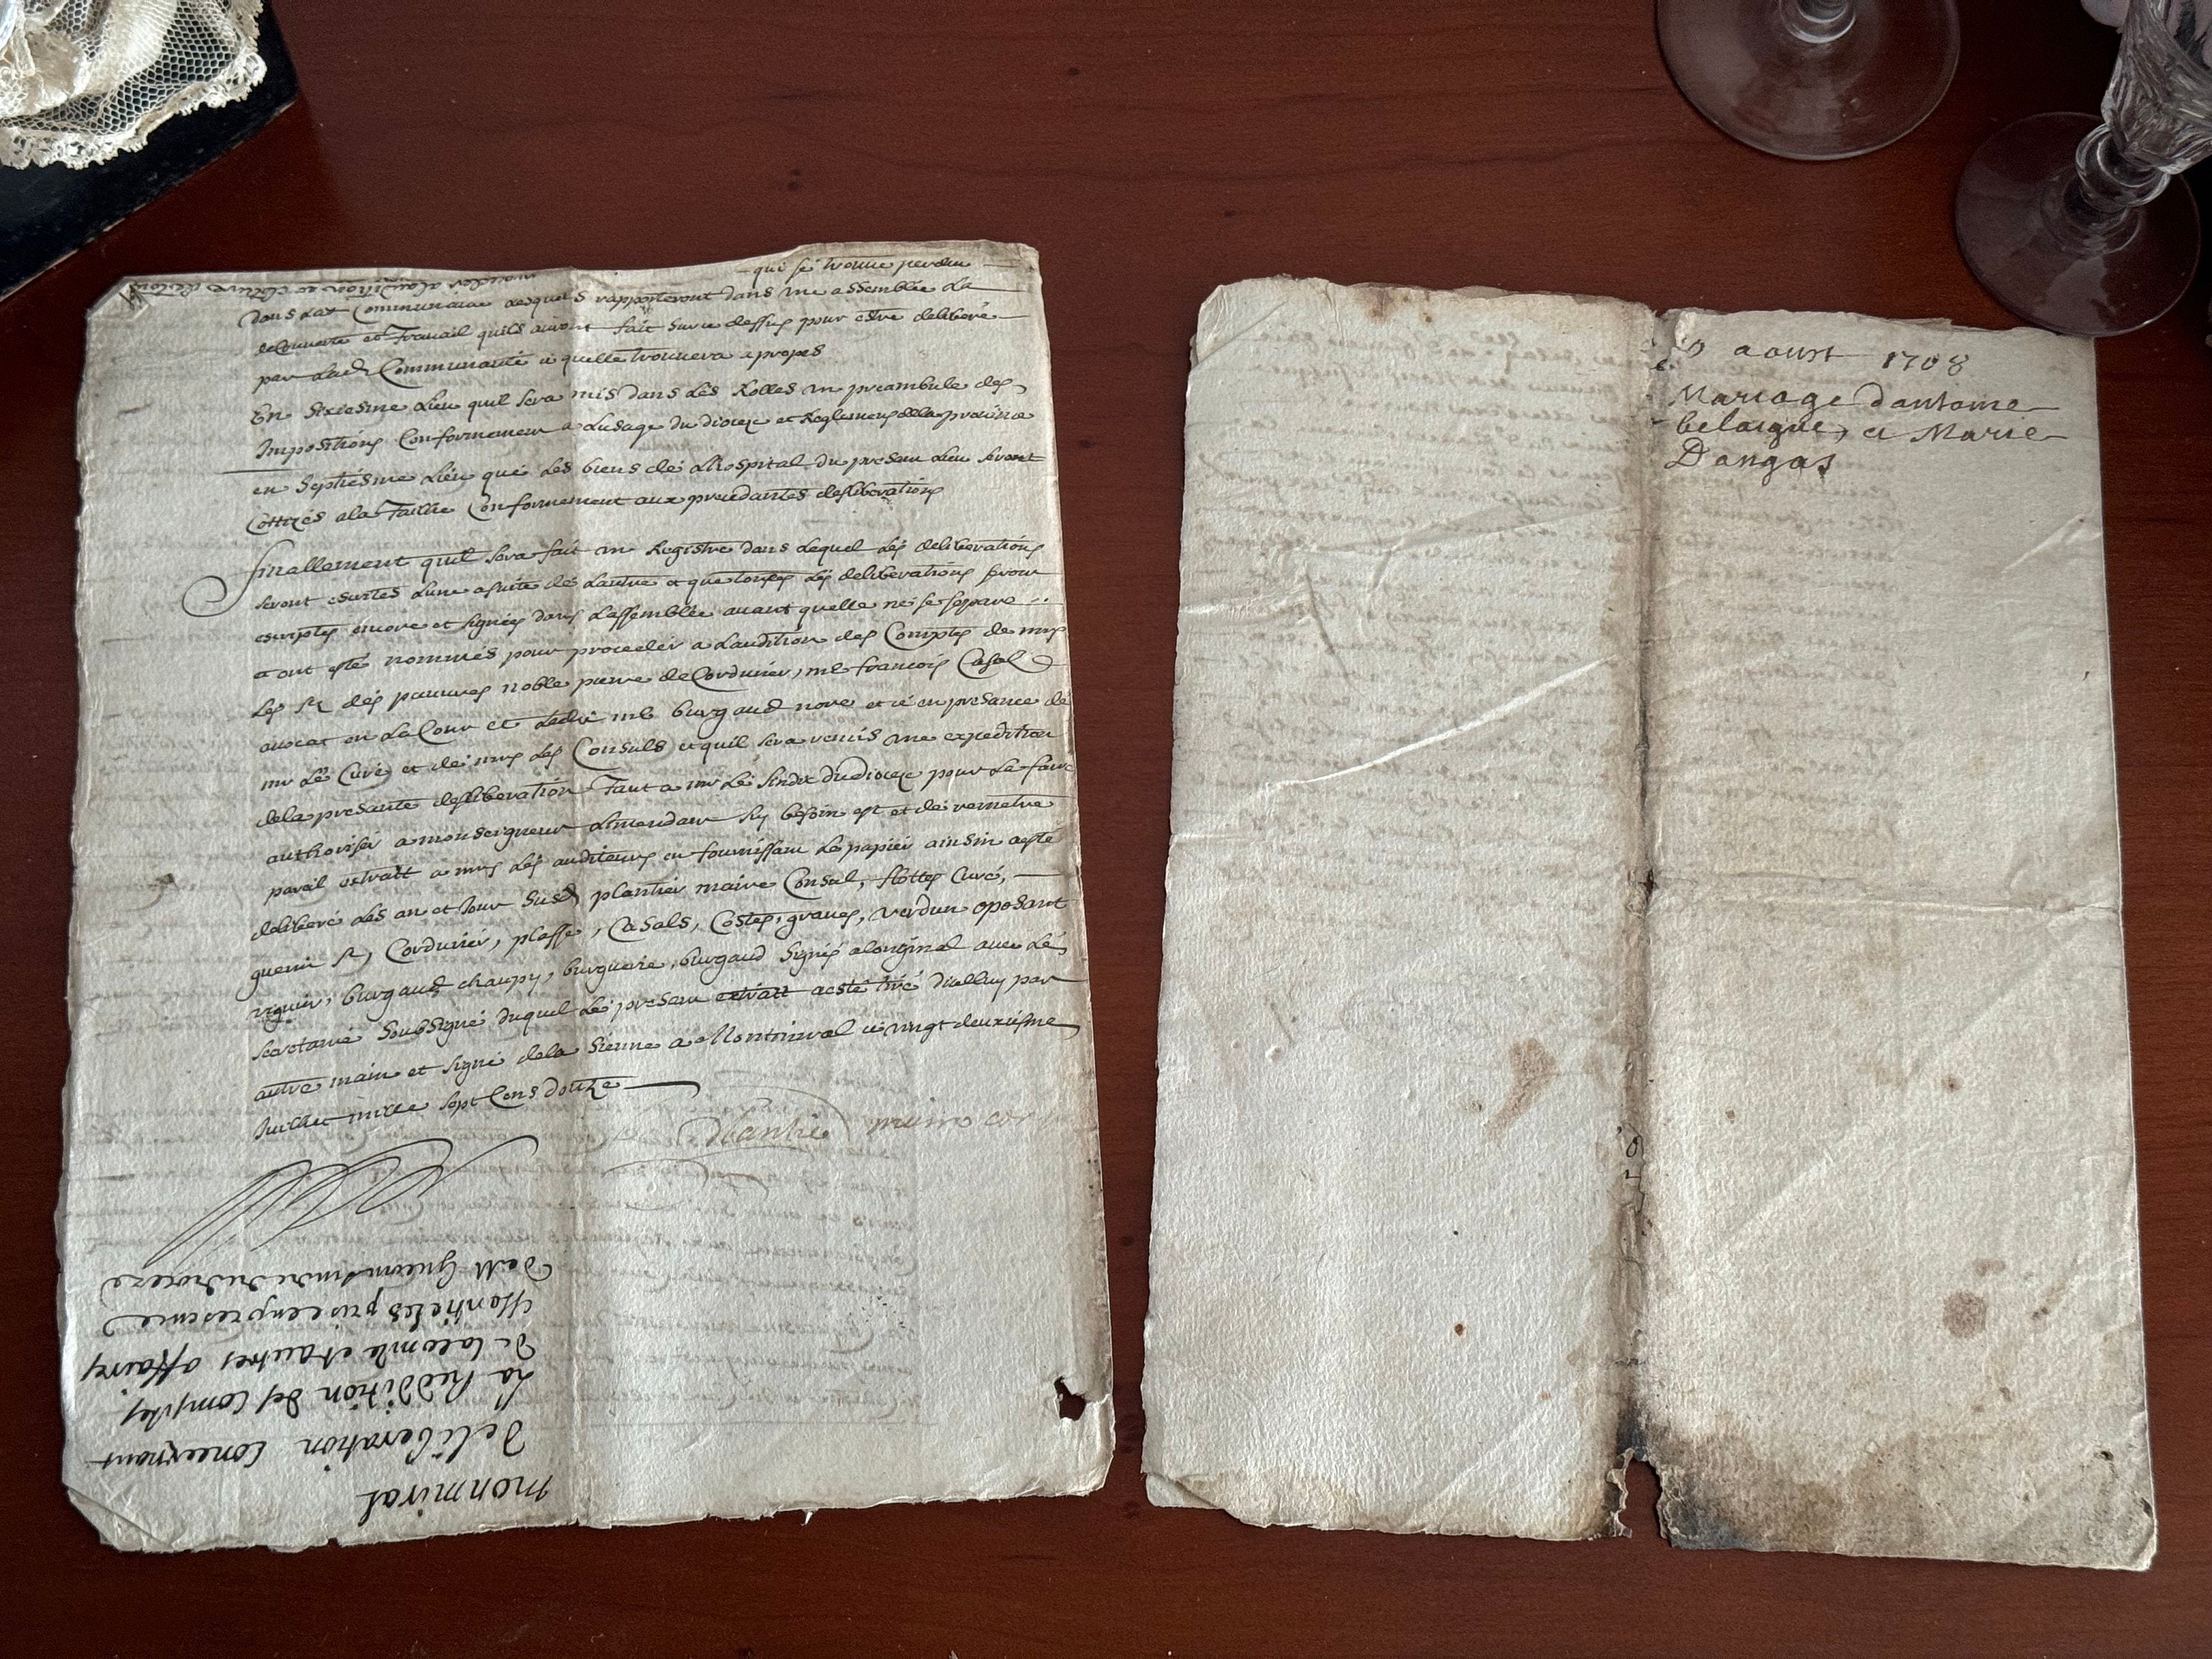 qui se trouve perdu
dans lad Communauté lesquels rapporteront dans une assemblée la
decouverte et Travail quils auront fait sur ce dessus pour estre deliberé
par lade Communauté ce quelle trouvera a propos
En sixiesme lieu quil sera mis dans les Rolles un preambule des
Impositions Conformement a Lusage du dioceze et Reglemens de la province
en septiesme lieu que les biens de Lhospital du presant lieu seront
Cottizés a la Taillie Conformement aux precedantes desliberations
finallement quil sera fait un Registre dans lequel les deliberations
seront escrites Lune a suite de Lautre et que toutes les deliberations seront
escriptes encore et signées dans Lassemblée auant quelle ne se separe
et ont esté nommés pour proceder a Laudition des Comptes de mrs
Les des pauures noble pierre de Cordurier, me francois Casal
auocat en La Cour et ledit me burgaud nore et ce en presance de
mr Le Curé et de mrs Les Consuls et quil sera remis une expedition
de la presante desliberation Tant a mr Le sindic du dioceze pour la faire
authoriser a monseigneur Lintendant sy besoin est et de remettre
pareil extrait a mrs Les auditeurs en fournissant Le papier ainsin a esté
deliberé Les an et Jour susd plantier maire Consul, flottes Curé,
guerin Cordurier, plasse, Casals, Costes, graues, verdun oposant
viguier, burgaud chaupy, burguiere, burgaud signés a loriginal auec Le
secretaire soubsigné duquel Le presant extrait a esté tiré dicelluy par
autre main et signé de la sienne a Montmiral ce vingt deuxiesme
Juillet mille sept Cens douze
plantié maire
monmiral
deliberation concernant
La Reddition des comptes
de la comte et autres affaires
prise en presence
de M Guerin sindic du dioceze
aoust 1708
Mariage dantoine
belaigue, et Marie
Dangas